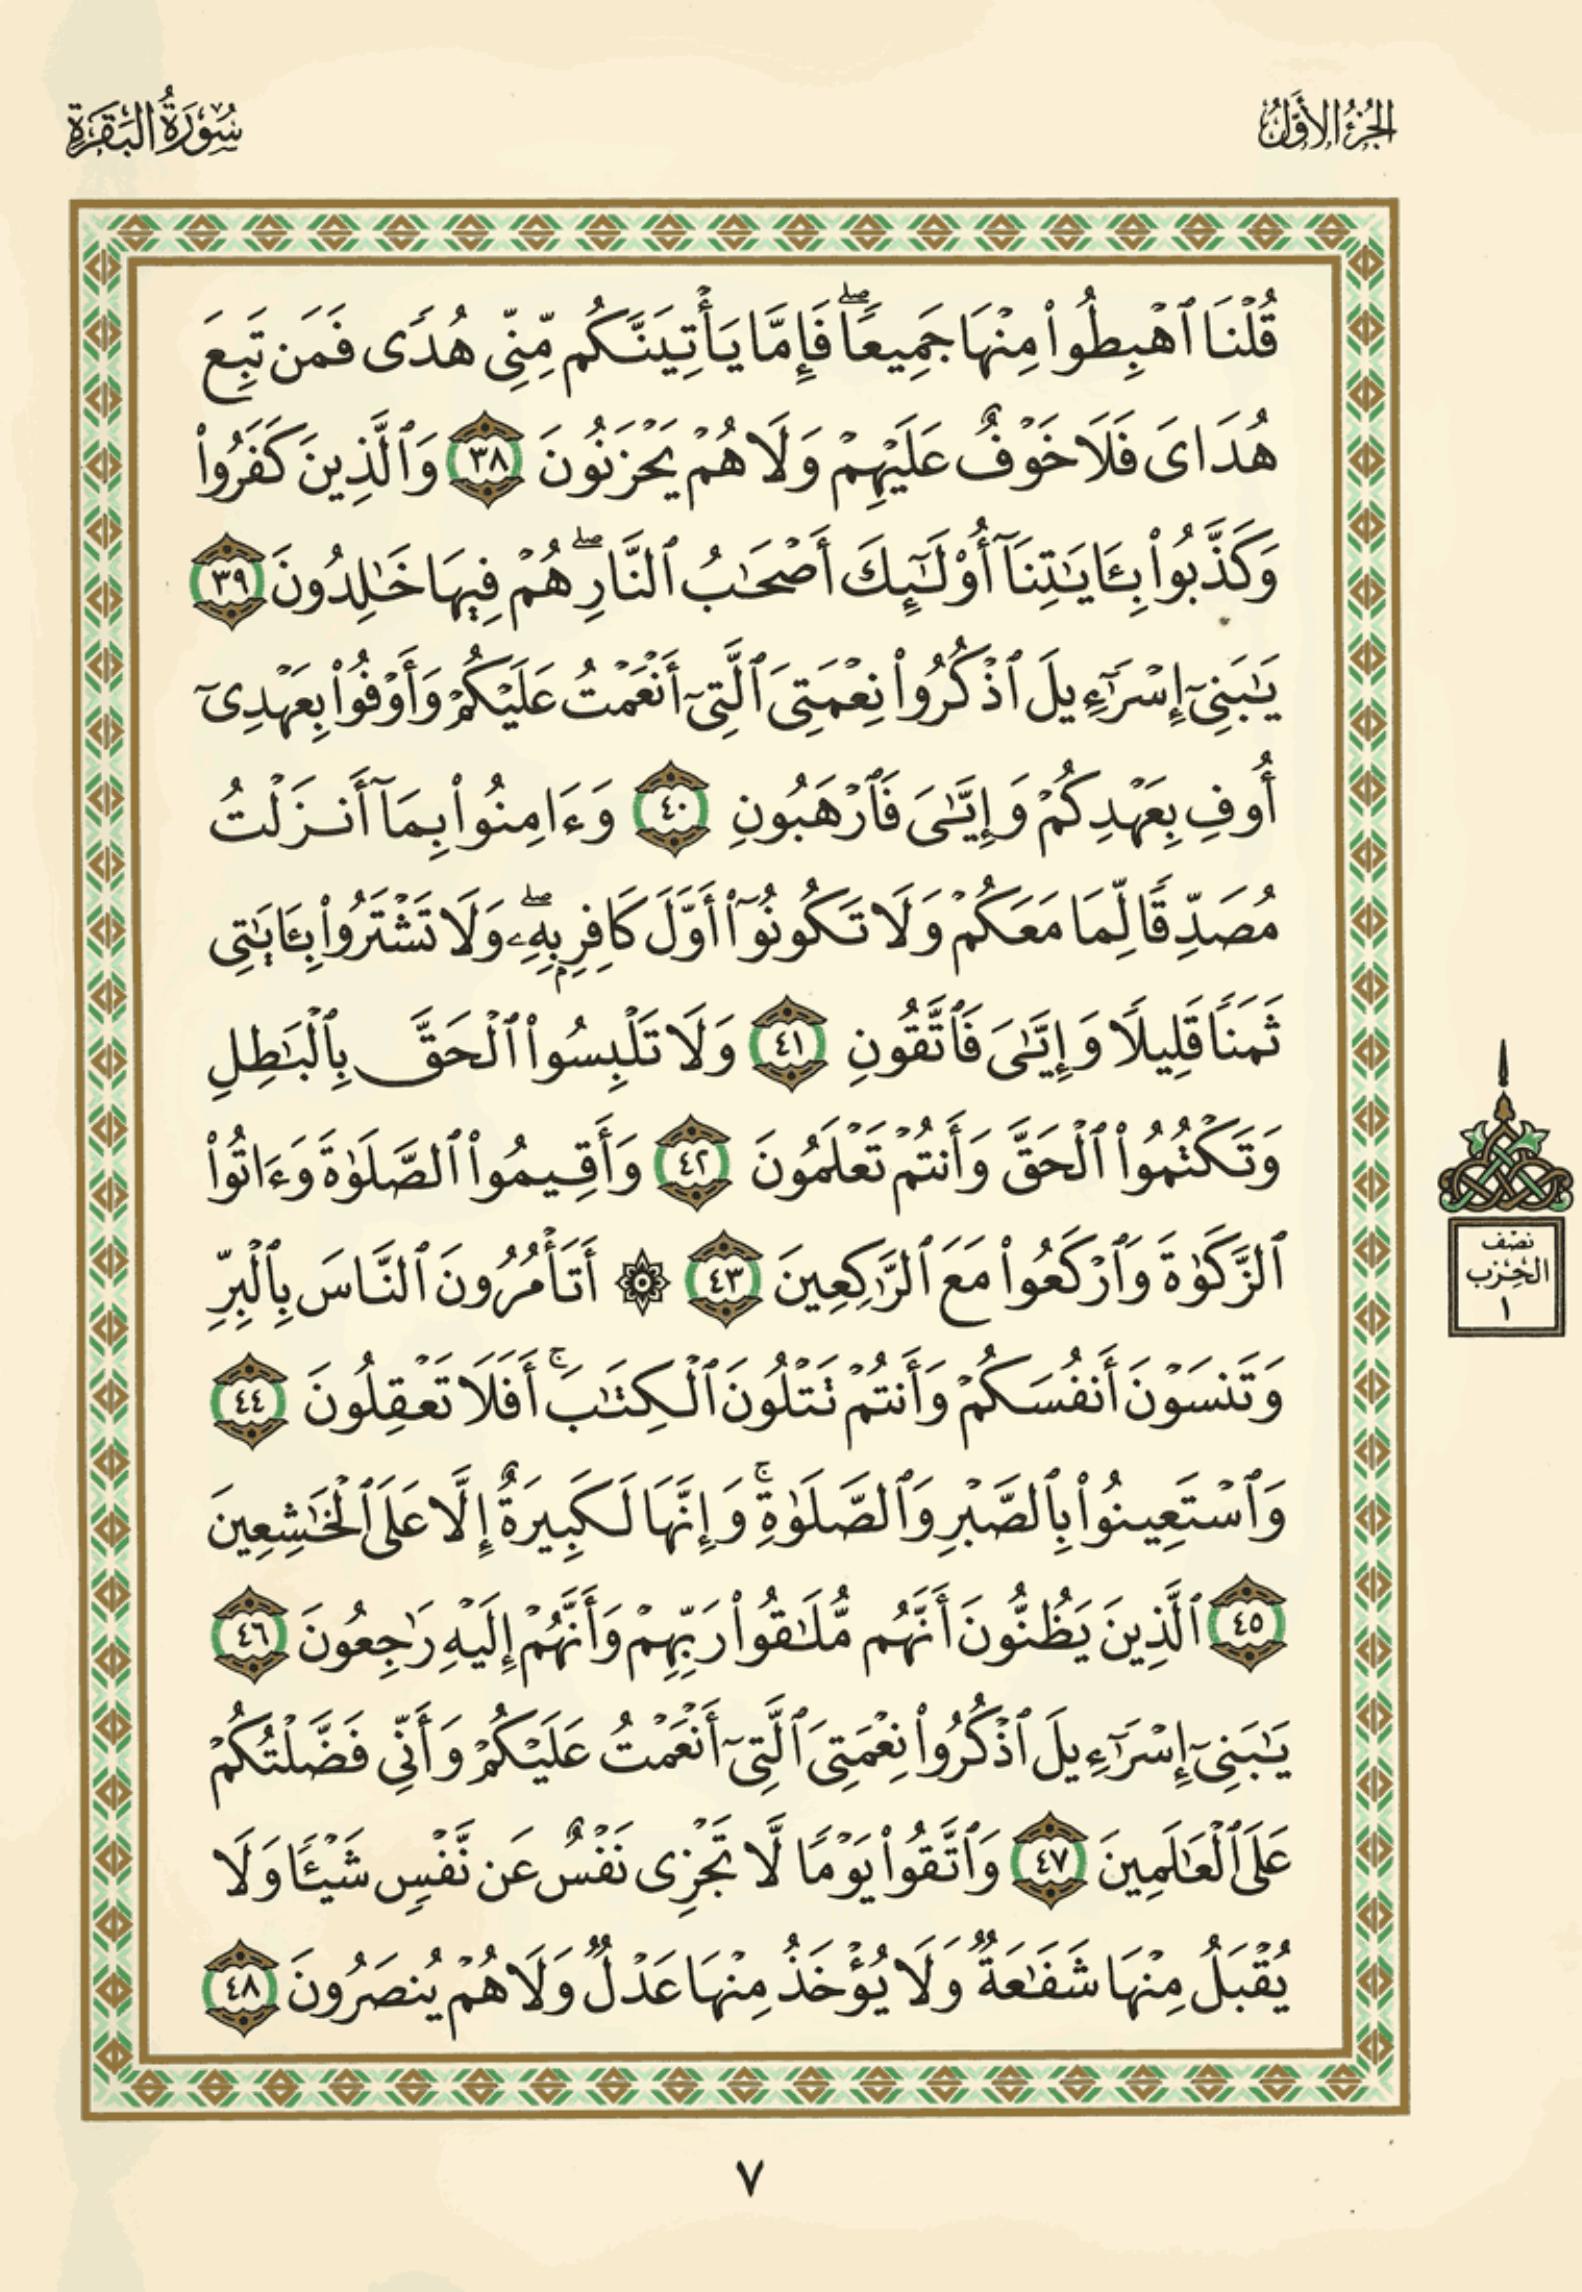 الجُزْءُ الأَوَّلُ
سُورَةُ البَقَرَةِ
قُلْنَا ٱهْبِطُوا۟ مِنْهَا جَمِيعًا ۖ فَإِمَّا يَأْتِيَنَّكُم مِّنِّى هُدًى فَمَن تَبِعَ
هُدَاىَ فَلَا خَوْفٌ عَلَيْهِمْ وَلَا هُمْ يَحْزَنُونَ ٣٨ وَٱلَّذِينَ كَفَرُوا۟
وَكَذَّبُوا۟ بِـَٔايَـٰتِنَآ أُو۟لَـٰٓئِكَ أَصْحَـٰبُ ٱلنَّارِ ۖ هُمْ فِيهَا خَـٰلِدُونَ ٣٩
يَـٰبَنِىٓ إِسْرَٰٓءِيلَ ٱذْكُرُوا۟ نِعْمَتِىَ ٱلَّتِىٓ أَنْعَمْتُ عَلَيْكُمْ وَأَوْفُوا۟ بِعَهْدِىٓ
أُوفِ بِعَهْدِكُمْ وَإِيَّـٰىَ فَٱرْهَبُونِ ٤٠ وَءَامِنُوا۟ بِمَآ أَنزَلْتُ
مُصَدِّقًا لِّمَا مَعَكُمْ وَلَا تَكُونُوٓا۟ أَوَّلَ كَافِرٍۭ بِهِۦ ۖ وَلَا تَشْتَرُوا۟ بِـَٔايَـٰتِى
ثَمَنًا قَلِيلًا وَإِيَّـٰىَ فَٱتَّقُونِ ٤١ وَلَا تَلْبِسُوا۟ ٱلْحَقَّ بِٱلْبَـٰطِلِ
وَتَكْتُمُوا۟ ٱلْحَقَّ وَأَنتُمْ تَعْلَمُونَ ٤٢ وَأَقِيمُوا۟ ٱلصَّلَوٰةَ وَءَاتُوا۟
ٱلزَّكَوٰةَ وَٱرْكَعُوا۟ مَعَ ٱلرَّٰكِعِينَ ٤٣ ۞ أَتَأْمُرُونَ ٱلنَّاسَ بِٱلْبِرِّ
وَتَنسَوْنَ أَنفُسَكُمْ وَأَنتُمْ تَتْلُونَ ٱلْكِتَـٰبَ ۚ أَفَلَا تَعْقِلُونَ ٤٤
وَٱسْتَعِينُوا۟ بِٱلصَّبْرِ وَٱلصَّلَوٰةِ ۚ وَإِنَّهَا لَكَبِيرَةٌ إِلَّا عَلَى ٱلْخَـٰشِعِينَ
٤٥ ٱلَّذِينَ يَظُنُّونَ أَنَّهُم مُّلَـٰقُوا۟ رَبِّهِمْ وَأَنَّهُمْ إِلَيْهِ رَٰجِعُونَ ٤٦
يَـٰبَنِىٓ إِسْرَٰٓءِيلَ ٱذْكُرُوا۟ نِعْمَتِىَ ٱلَّتِىٓ أَنْعَمْتُ عَلَيْكُمْ وَأَنِّى فَضَّلْتُكُمْ
عَلَى ٱلْعَـٰلَمِينَ ٤٧ وَٱتَّقُوا۟ يَوْمًا لَّا تَجْزِى نَفْسٌ عَن نَّفْسٍ شَيْـًٔا وَلَا
يُقْبَلُ مِنْهَا شَفَـٰعَةٌ وَلَا يُؤْخَذُ مِنْهَا عَدْلٌ وَلَا هُمْ يُنصَرُونَ ٤٨
نصْف
الحِزب
١
٧